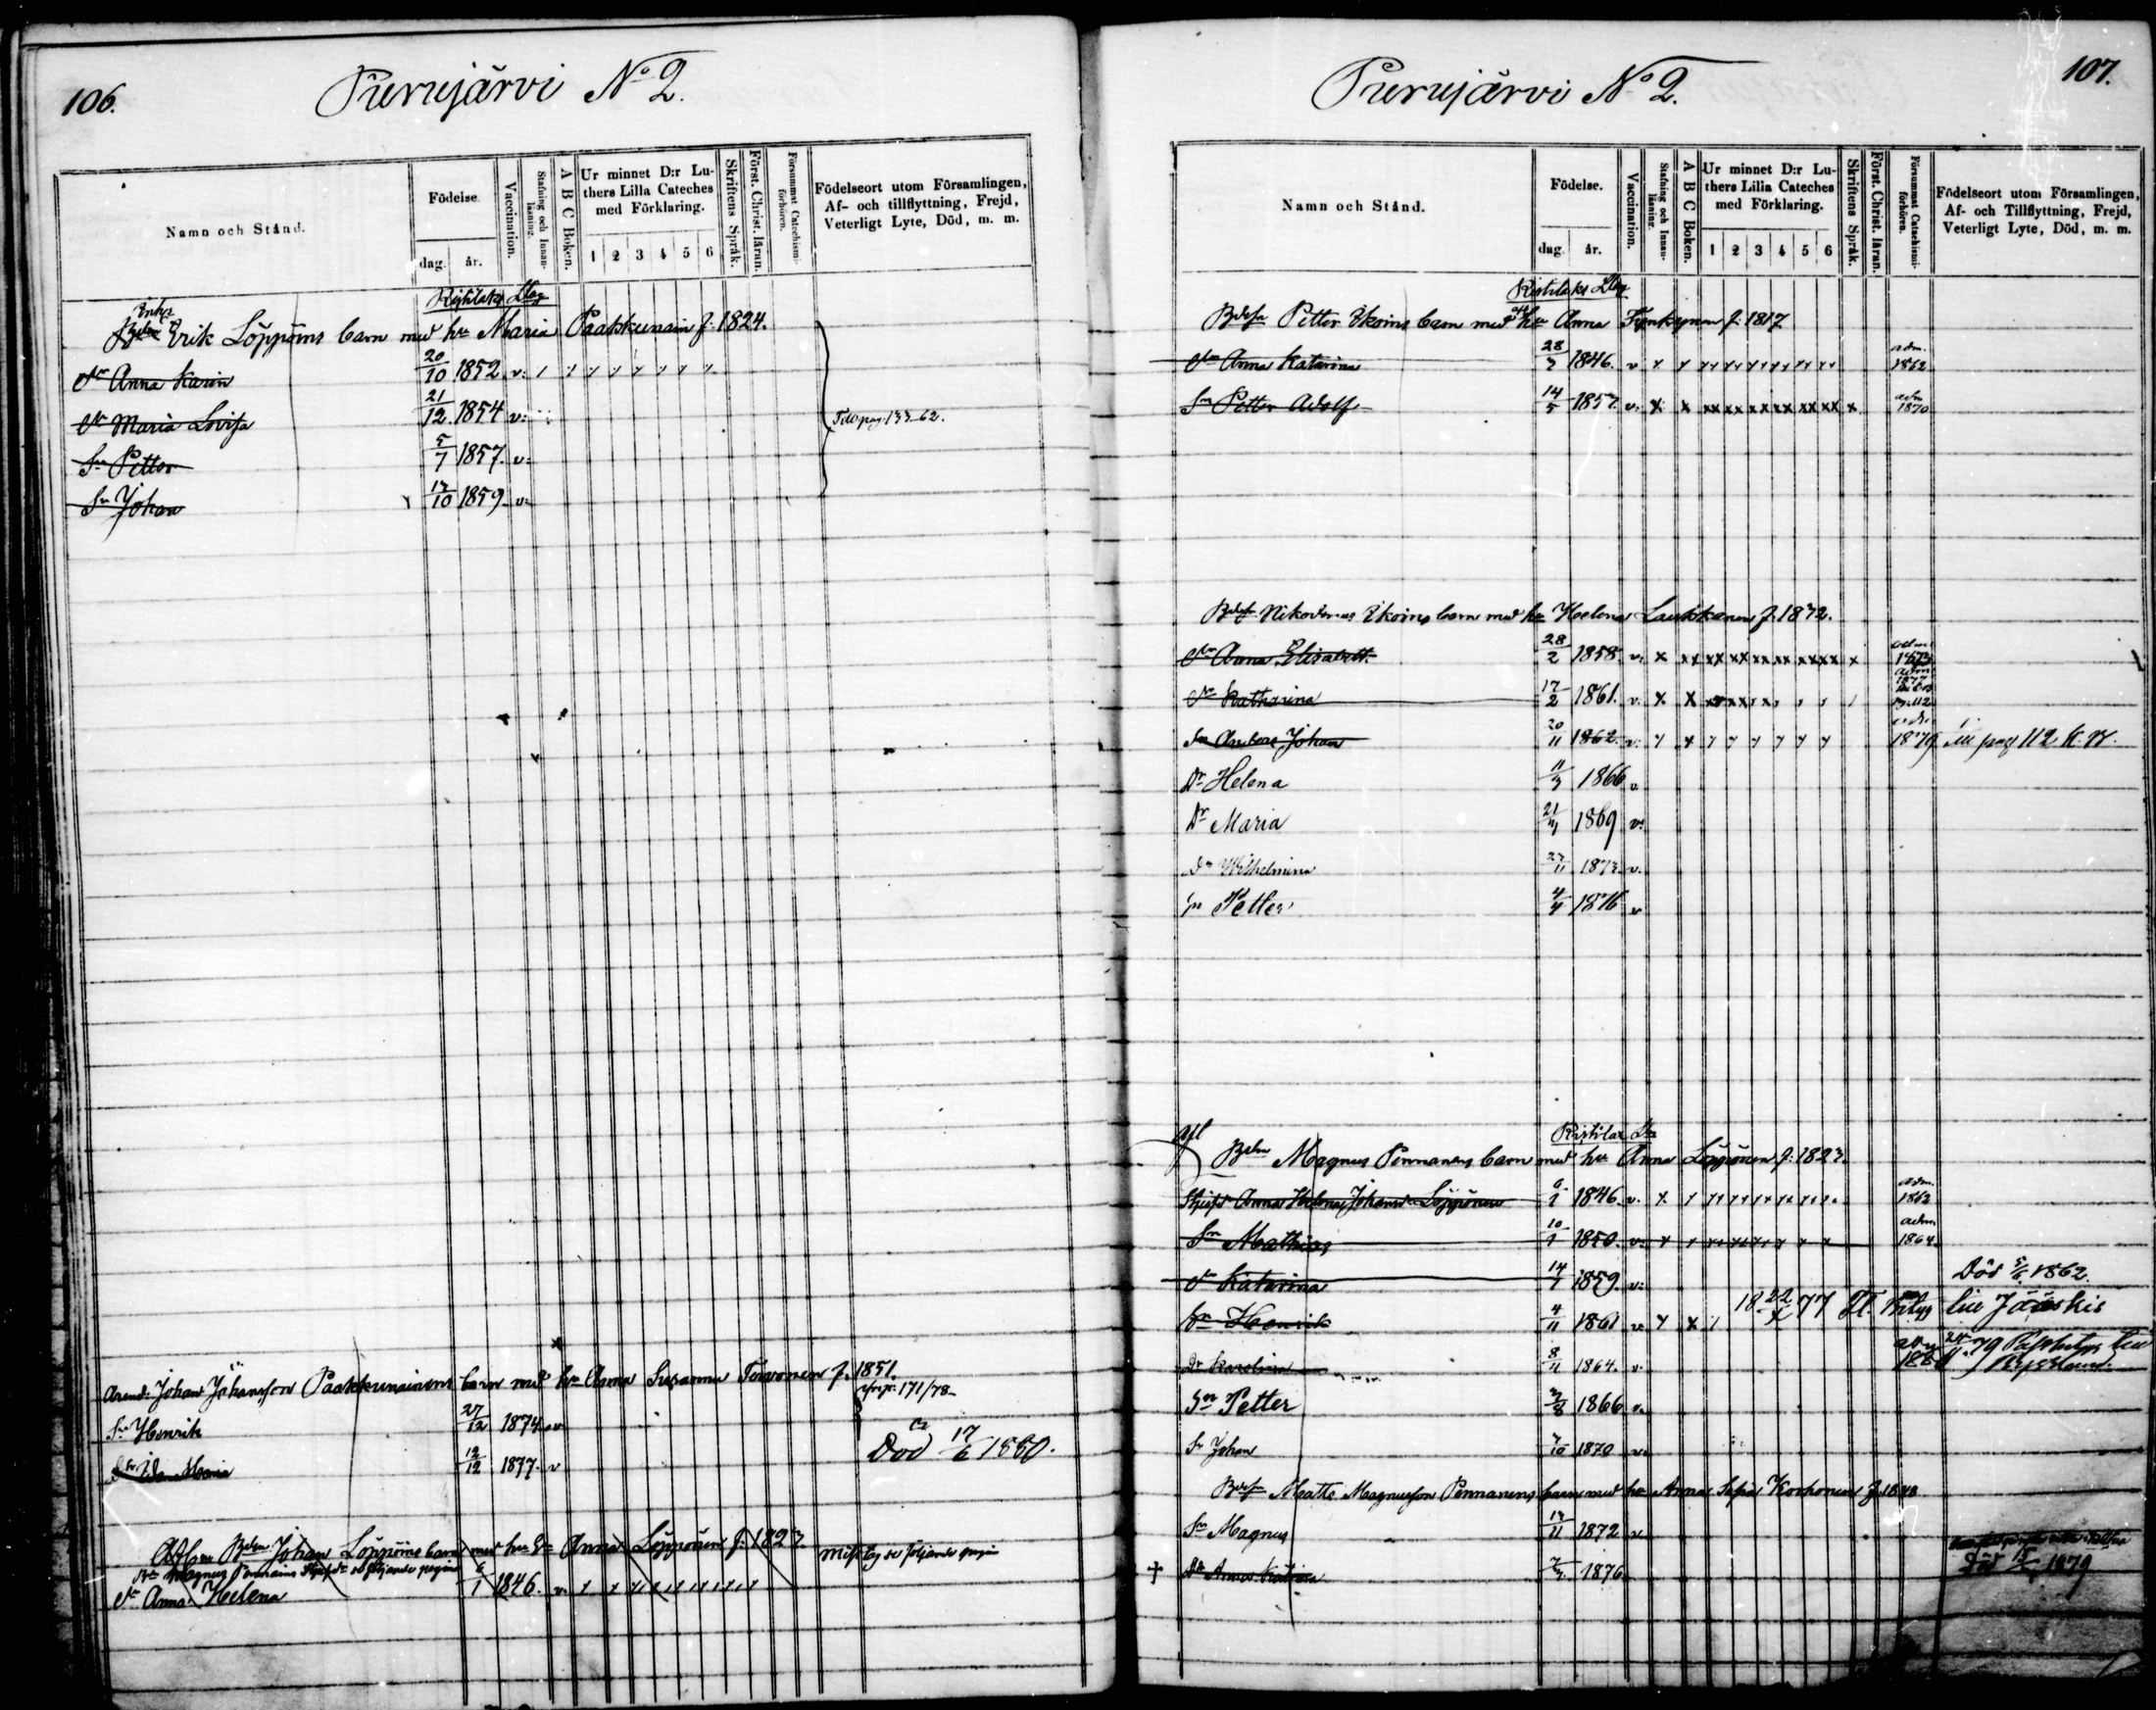 106.
Purujärvi No 2.
Namn och Stånd.
Födelse.
dag. år.
Vaccination.
Stafning och Innan-läsning.
A B C Boken.
Ur minnet D:r Lu-
thers Lilla Cateches
med Förklaring.
1 2 3 4 5 6
Skriftens Språk.
Först. Christ. läran.
Försummat Catechismi-förhören.
Födelseort utom Församlingen,
Af- och tillflyttning, Frejd,
Veterligt Lyte, Död, m. m.
Ristilaks Lag
Enkl
Bdn Erik Löppöins barn med hu Maria Paakkunain f. 1824.
Dr Anna Karin 20/10 1852. v.
Dr Maria Lovisa 21/12 1854 v. pag 133-62.
Sn Petter 5/7 1857. v.
Sn Johan 17/10 1859. v.
Arend: Johan Johansson Paakkunainens barn med hu Anna Susanna Toivonen f. 1851.
171/78
Sn Henrik 27/12 1874 v
Dr Ida Maria 12/12 1877. v Död 17/6 1880.
Bdn Johan Löppöins barn med hu Anna Löppönen f. 1823. misstag se följande pagina
Bn Magnus Pennanins se följande pagina
Dr Anna Helena 6/1 1846. v.
107.
Purujärvi No 2.
Namn och Stånd.
Födelse.
dag. år.
Vaccination.
Stafning och Innan-läsning.
A B C Boken.
Ur minnet D:r Lu-
thers Lilla Cateches
med Förklaring.
1 2 3 4 5 6
Skriftens Språk.
Först. Christ. läran.
Försummat Catechismi-förhören.
Födelseort utom Församlingen,
Af- och Tillflyttning, Frejd,
Veterligt Lyte, Död, m. m.
Ristilaks Lag
Petter Ikoins barn med hu Anna Tynkynen f. 1817
Dr Anna Katarina 28/3 1846. v adm. 1862
Sn Petter Adolf 14/5 1857. v. adm 1870
Nikodemus Ikoins barn med hu Helena Laukkanen f. 1832.
Dr Anna Elisabeth 28/2 1858. v. adm 1873
Dr Katharina 17/2 1861. v. adm 1877 pag. 112
Sn Anders Johan 20/11 1862. v. adm. 1879 till pag 112 k. r.
Dr Helena 11/3 1866 v
Dr Maria 1869 v.
Dr Wilhelmina 27/11 1873. v.
Sn Petter 4/4 1876 v
Ristilax Lag
Bdn Magnus Pennanens barn med hu Anna Löppönen f. 1823.
Anna Helena Johansdr Löppönen 6/1 1846. v. adm. 1862
Sn Mathias 10/1 1850. v. adm 1864.
Dr Katarina 14/1 1859. v. Död 5/6 1862.
Sn Henrik 4/11 1861 v 18 22/X 77 till Jääskis
Dr Karolina 8/11 1864. v. adm 1880 79
Sn Petter 3/8 1866 v.
Sn Johan 7/10 1870 v.
Matts Magnusson Pennanens barn med hu Anna Sofia Korhonen f. 1848
Sn Magnus 13/11 1872 v
+ Dr Anna Katrina 1876 Död 15/4 1879